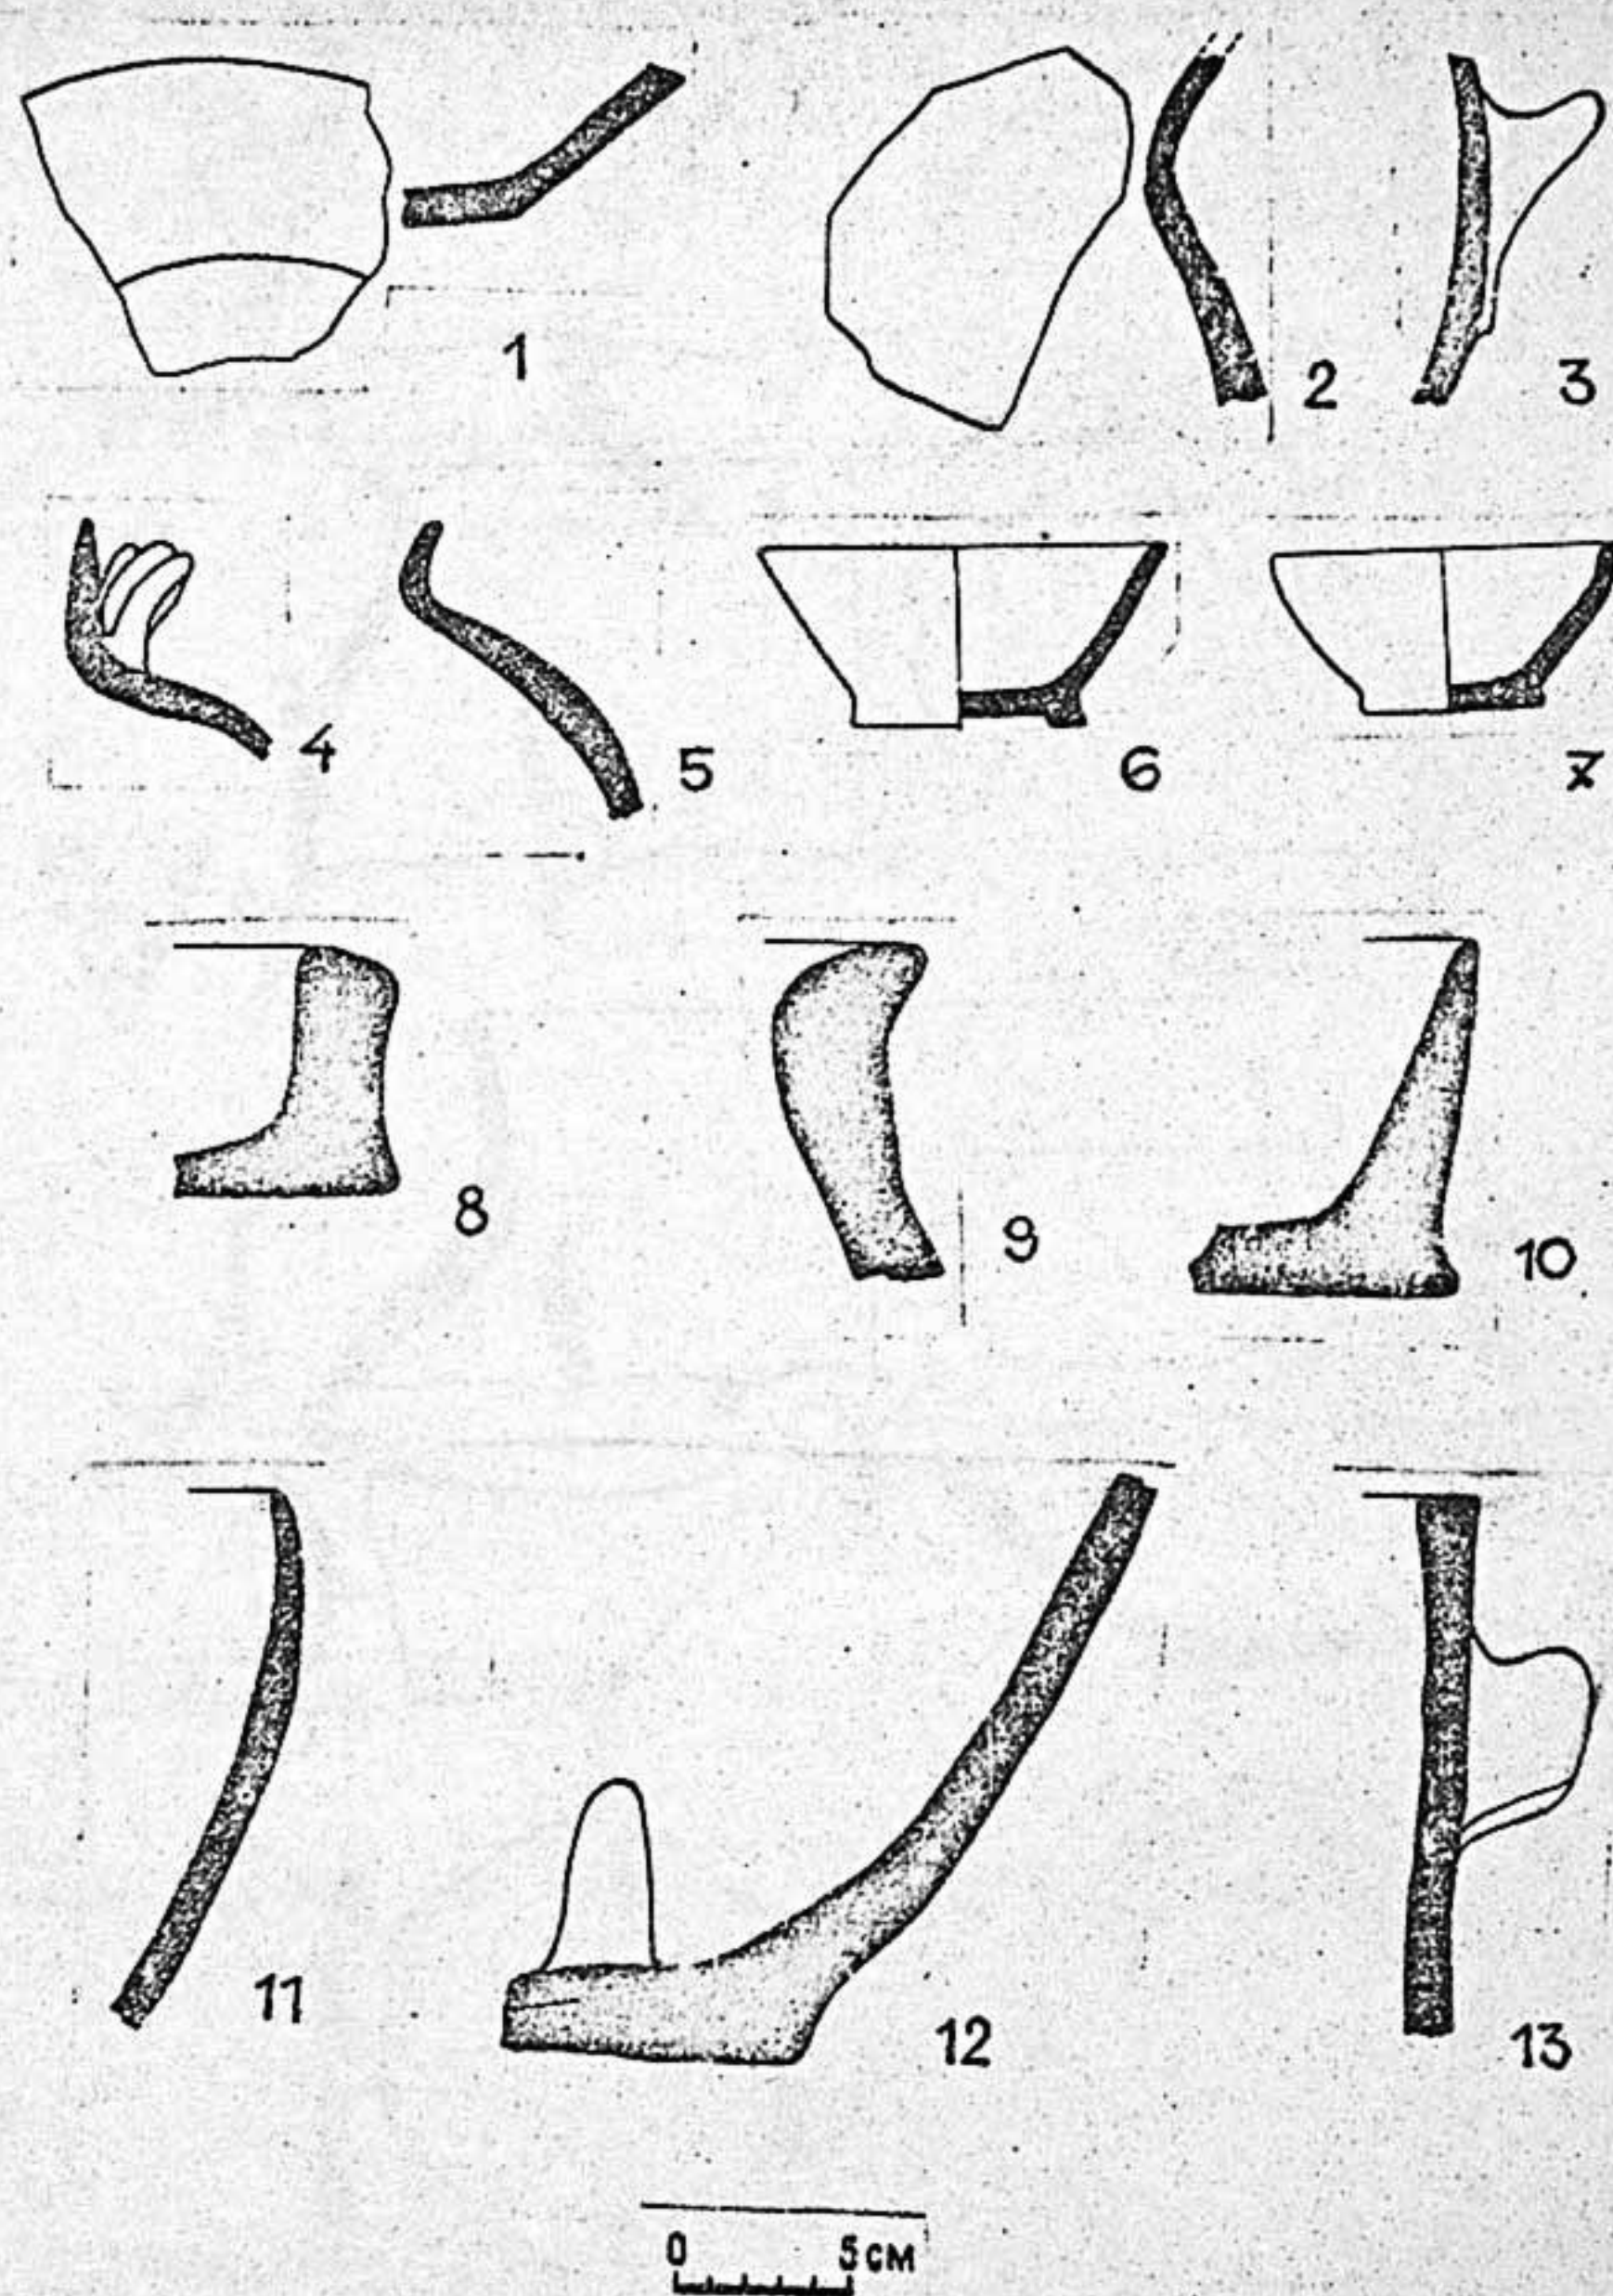 1
2
3
4
5
6
7
8
9
10
11
12
13
0 5 см